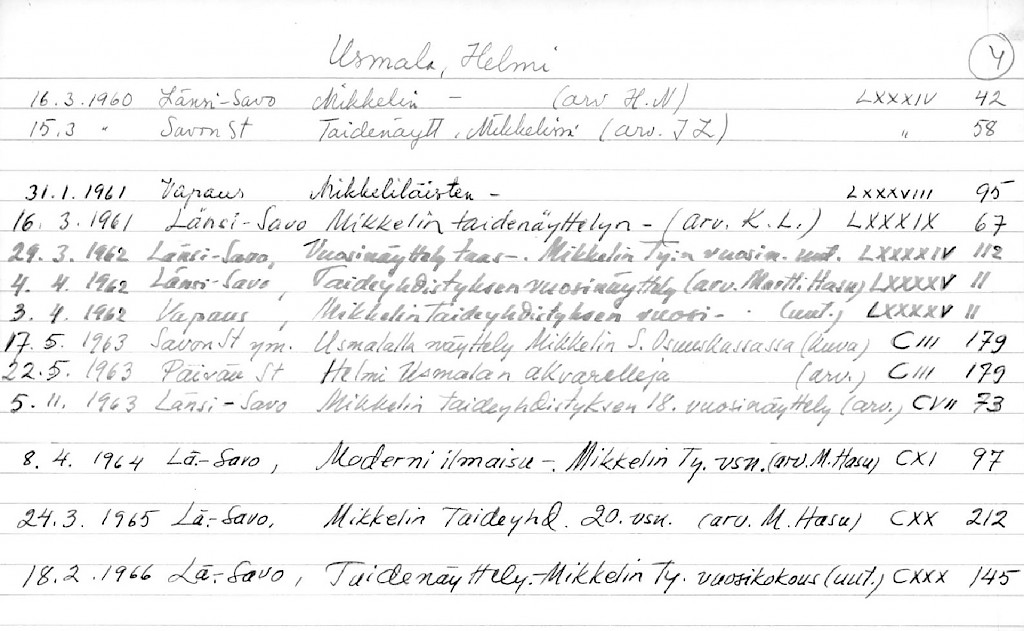 Usmala, Helmi 4
16.3.1960 Länsi-Savo Mikkelin - (arv H.N) LXXXIV 42
15.3 " Savon St Taidenäytt. Mikkelissä (arv. J L) " 58
31.1.1961 Vapaus Mikkeliläisten - LXXXVIII 95
16.3.1961 Länsi-Savo Mikkelin taidenäyttelyn - (arv. K.L.) LXXXIX 67
29.3.1962 Länsi-Savo, Vuosinäyttely taas -. Mikkelin Ty:n vuosin. uut. LXXXXIV 112
4. 4. 1962 Länsi-Savo, Taideyhdistyksen vuosinäyttely (arv. Martti Hasu) LXXXXV 11
3. 4. 1962 Vapaus, Mikkelin Taideyhdistyksen vuosi- . (uut.) LXXXXV 11
17. 5. 1963 Savon St ym. Usmalalla näyttely Mikkelin S. Osuuskassassa (kuva) CIII 179
22.5. 1963 Päivän St Helmi Usmalan akvarelleja (arv.) CIII 179
5. 11. 1963 Länsi-Savo Mikkelin taideyhdistyksen 18. vuosinäyttely (arv.) CVII 73
8. 4. 1964 Lä.-Savo, Moderni ilmaisu -. Mikkelin Ty. vsn. (arv. M. Hasu) CXI 97
24.3. 1965 Lä.-Savo, Mikkelin Taideyhd. 20. vsn. (arv. M. Hasu) CXX 212
18.2.1966 Lä.-Savo, Taidenäyttely.-Mikkelin Ty. vuosikokous (uut.) CXXX 145